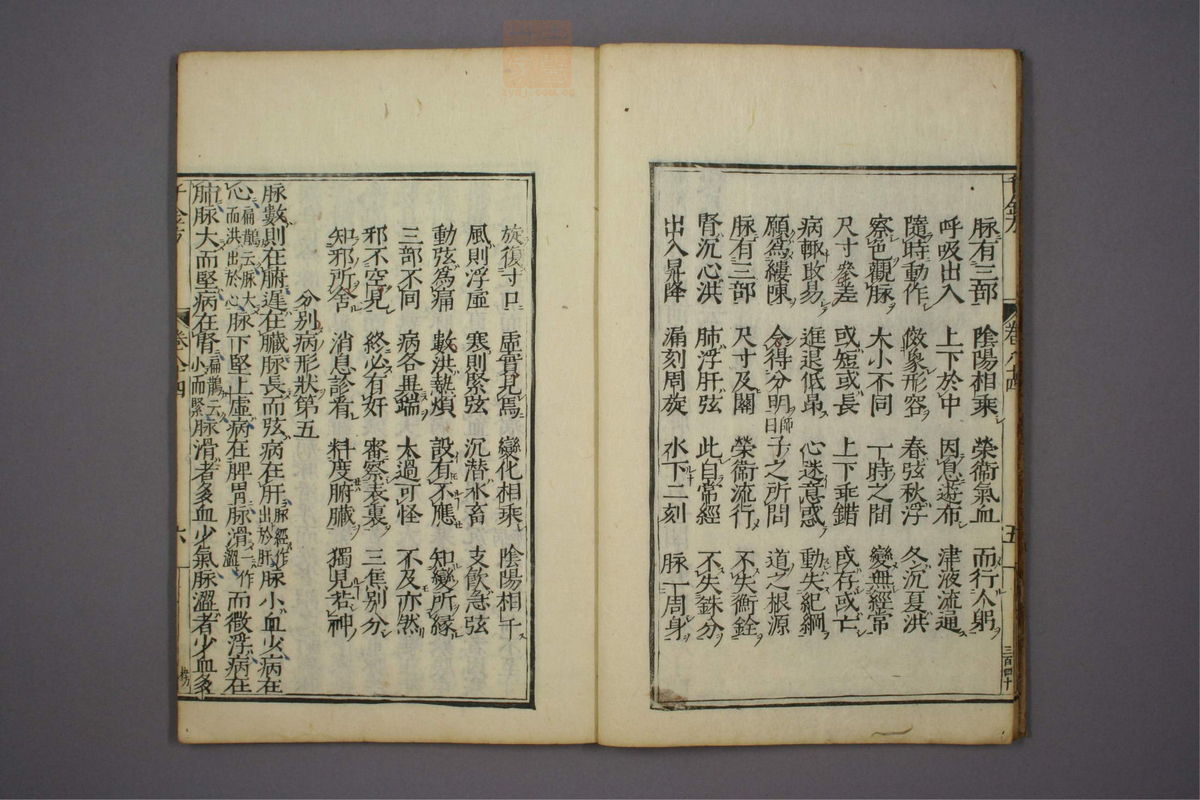 脉有三部 陰陽相乘 榮衞氣血 而行人躬
呼吸出入 上下於中 因息遊布 津液流通
隨時動作 俲象形容 春弦秋浮 冬沉夏洪
察色觀脉 大小不同 一時之間 變無經常
尺寸參差 或短或長 上下乖錯 或存或亡
病輙敗易 進退低昂 心迷意惑 動失紀綱
願爲縷陳 令得分明 師曰 子之所問 道之根源
脉有三部 尺寸及關 榮衞流行 不失衡銓
腎沉心洪 肺浮肝弦 此自常經 不失銖分
出入昇降 漏刻周旋 水下二刻 脉一周身
旋復寸口 虛實見焉 變化相乘 陰陽相干
風則浮虛 寒則緊弦 沉潜水畜 支飲急弦
動弦爲痛 數洪熱煩 設有不應 知變所縁
三部不同 病各異端 太過可怪 不及亦然
邪不空見 終必有奸 審察表裏 三焦別分
知邪所舍 消息診看 料度腑臟 獨見若神
分別病形狀第五
脉數則在腑遲在臟脉長而弦病在肝脉經作出於肝脉小血少病在
心扁鵲云脉大而洪出於心脉下堅上虛病在脾胃脉滑一作澀而微浮病在
肺脉大而堅病在腎扁鵲云小而緊脉滑者多血少氣脉澀者少血多
千金方 卷八四 五 三百四十
千金方 卷八四 六